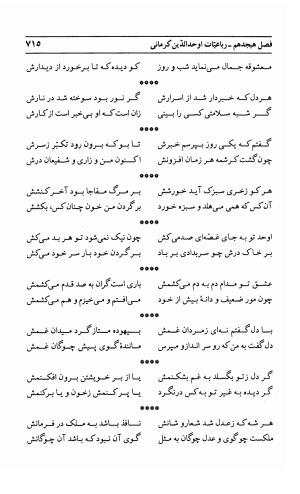 فصل هیجدهم ـ رباعیّات اوحدالدّین کرمانی ۷۱۵
معشوقه جمال می‌نماید شب و روز کو دیده که تا برخورد از دیدارش
****
هردل که خبردار شد از اسرارش گر نور بود سوخته شد در نارش
گر شبه سلامتی کسی را بینی زان است که او بی‌خبر است از کارش
****
گفتم که یکی روز بپرسم خبرش تا بو که برون رود تکبّر زسرش
چون‌گشت کرشمه هر زمان افزونش اکنون من و زاری و شفیعان درش
****
هر کو زخری سبزک آید خورشش بر مرگ مفاجا بود آخر کنشش
آن‌کس که همی می‌هلد و سبزه خورد برگردن من خون چنان کس، بکشش
****
اوحد تو به جای غصّه‌ای صدمی‌کش چون نیک نمی‌شود تو هر بد می‌کش
بر خاک درش چو سربدادی بر باد بر گردن خود بار سر خود می‌کش
****
عشق تو مدام دم به دم می‌کشمش باری است گران به صد قدم می‌کشمش
چون مور ضعیف و دانهٔ بیش از خود می‌افتم و می‌خیزم و هم می‌کشمش
****
با دل گفتم نه‌ای زمردان غمش بیهوده متاز گرد میدان غمش
دل گفت به من که رو سر اندازو مپرس مانندهٔ گوی پیش چوگان غمش
****
گر دل زتو بگسلد به غم بشکنمش یا از بر خویشتن برون افکنمش
گر دیده به غیر تو به کس درنگرد یا پر کنمش زخون و یا برکنمش
****
هر شه که زعدل شد شعارو شانش نافذ باشد به ملک در فرمانش
ملکست چو گوی و عدل چوگان به مثل گوی آن نبود که باشد آن چوگانش